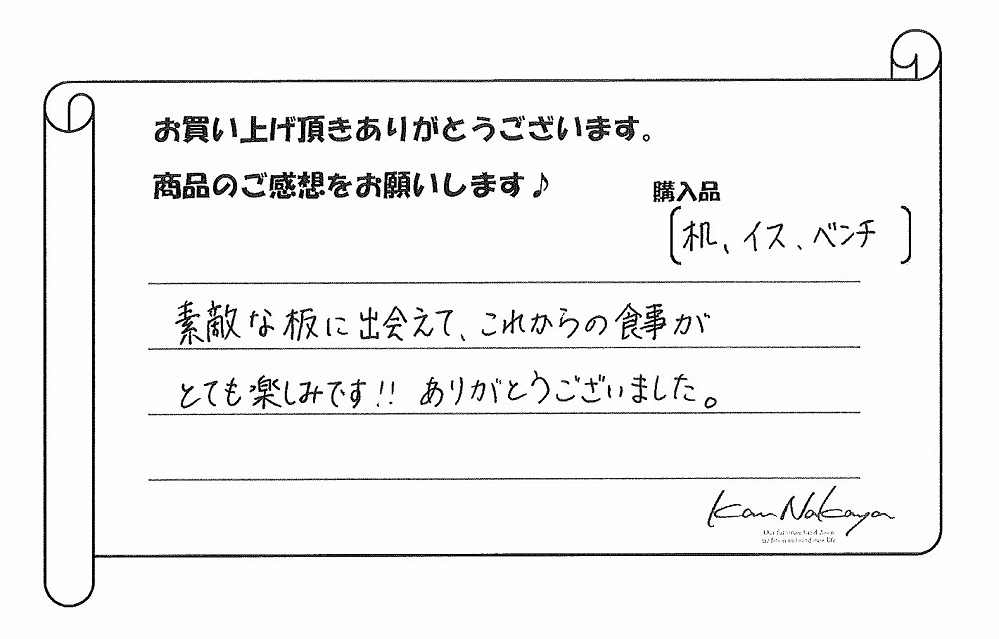 お買い上げ頂きありがとうございます。
商品のご感想をお願いします♪
購入品
[机、イス、ベンチ]
素敵な板に出会えて、これからの食事が
とても楽しみです!! ありがとうございました。
Kan Nakaya